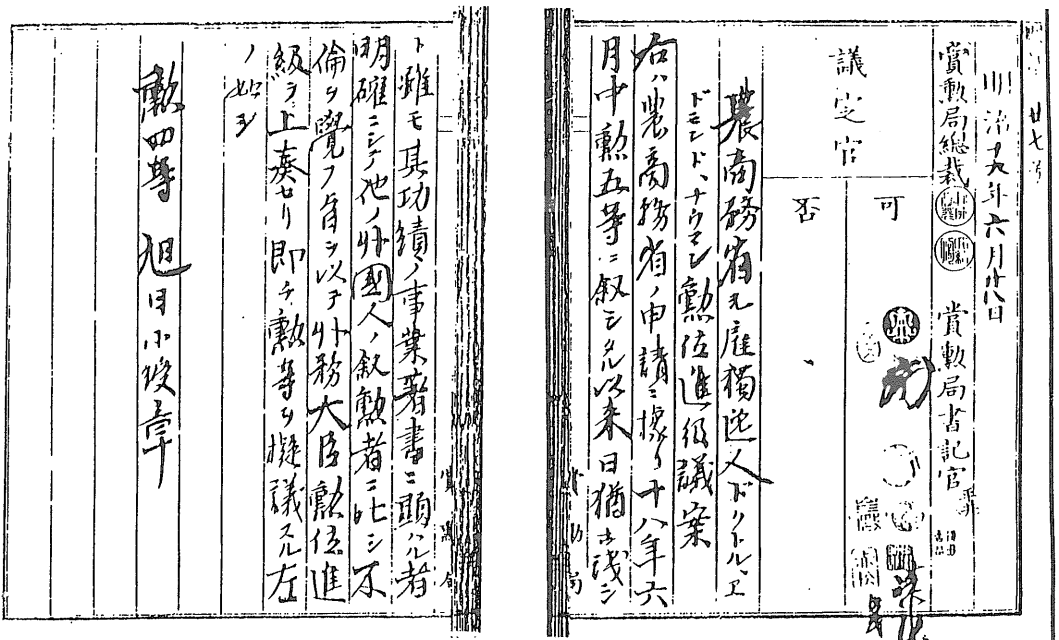 廿七号
明治十九年六月廿八日
賞勲局総裁
賞勲局書記官
議定官
可
否
農商務省元雇獨逸人ドクトル、エ
ドモンド、ナウマン勲位進級議案
右ハ農商務省ノ申請ニ據リ十八年六
月中勲五等ニ叙シタル以来日猶ホ浅シ
ト雖モ其功績ノ事業著書ニ顕ハル者
明確ニシテ他ノ外國人ノ叙勲者ニ比シ不
倫ヲ覺フ旨ヲ以テ外務大臣勲位進
級ヲ上奏セリ即チ勲等ヲ擬議スル左
ノ如シ
勲四等 旭日小綬章
賞勲局